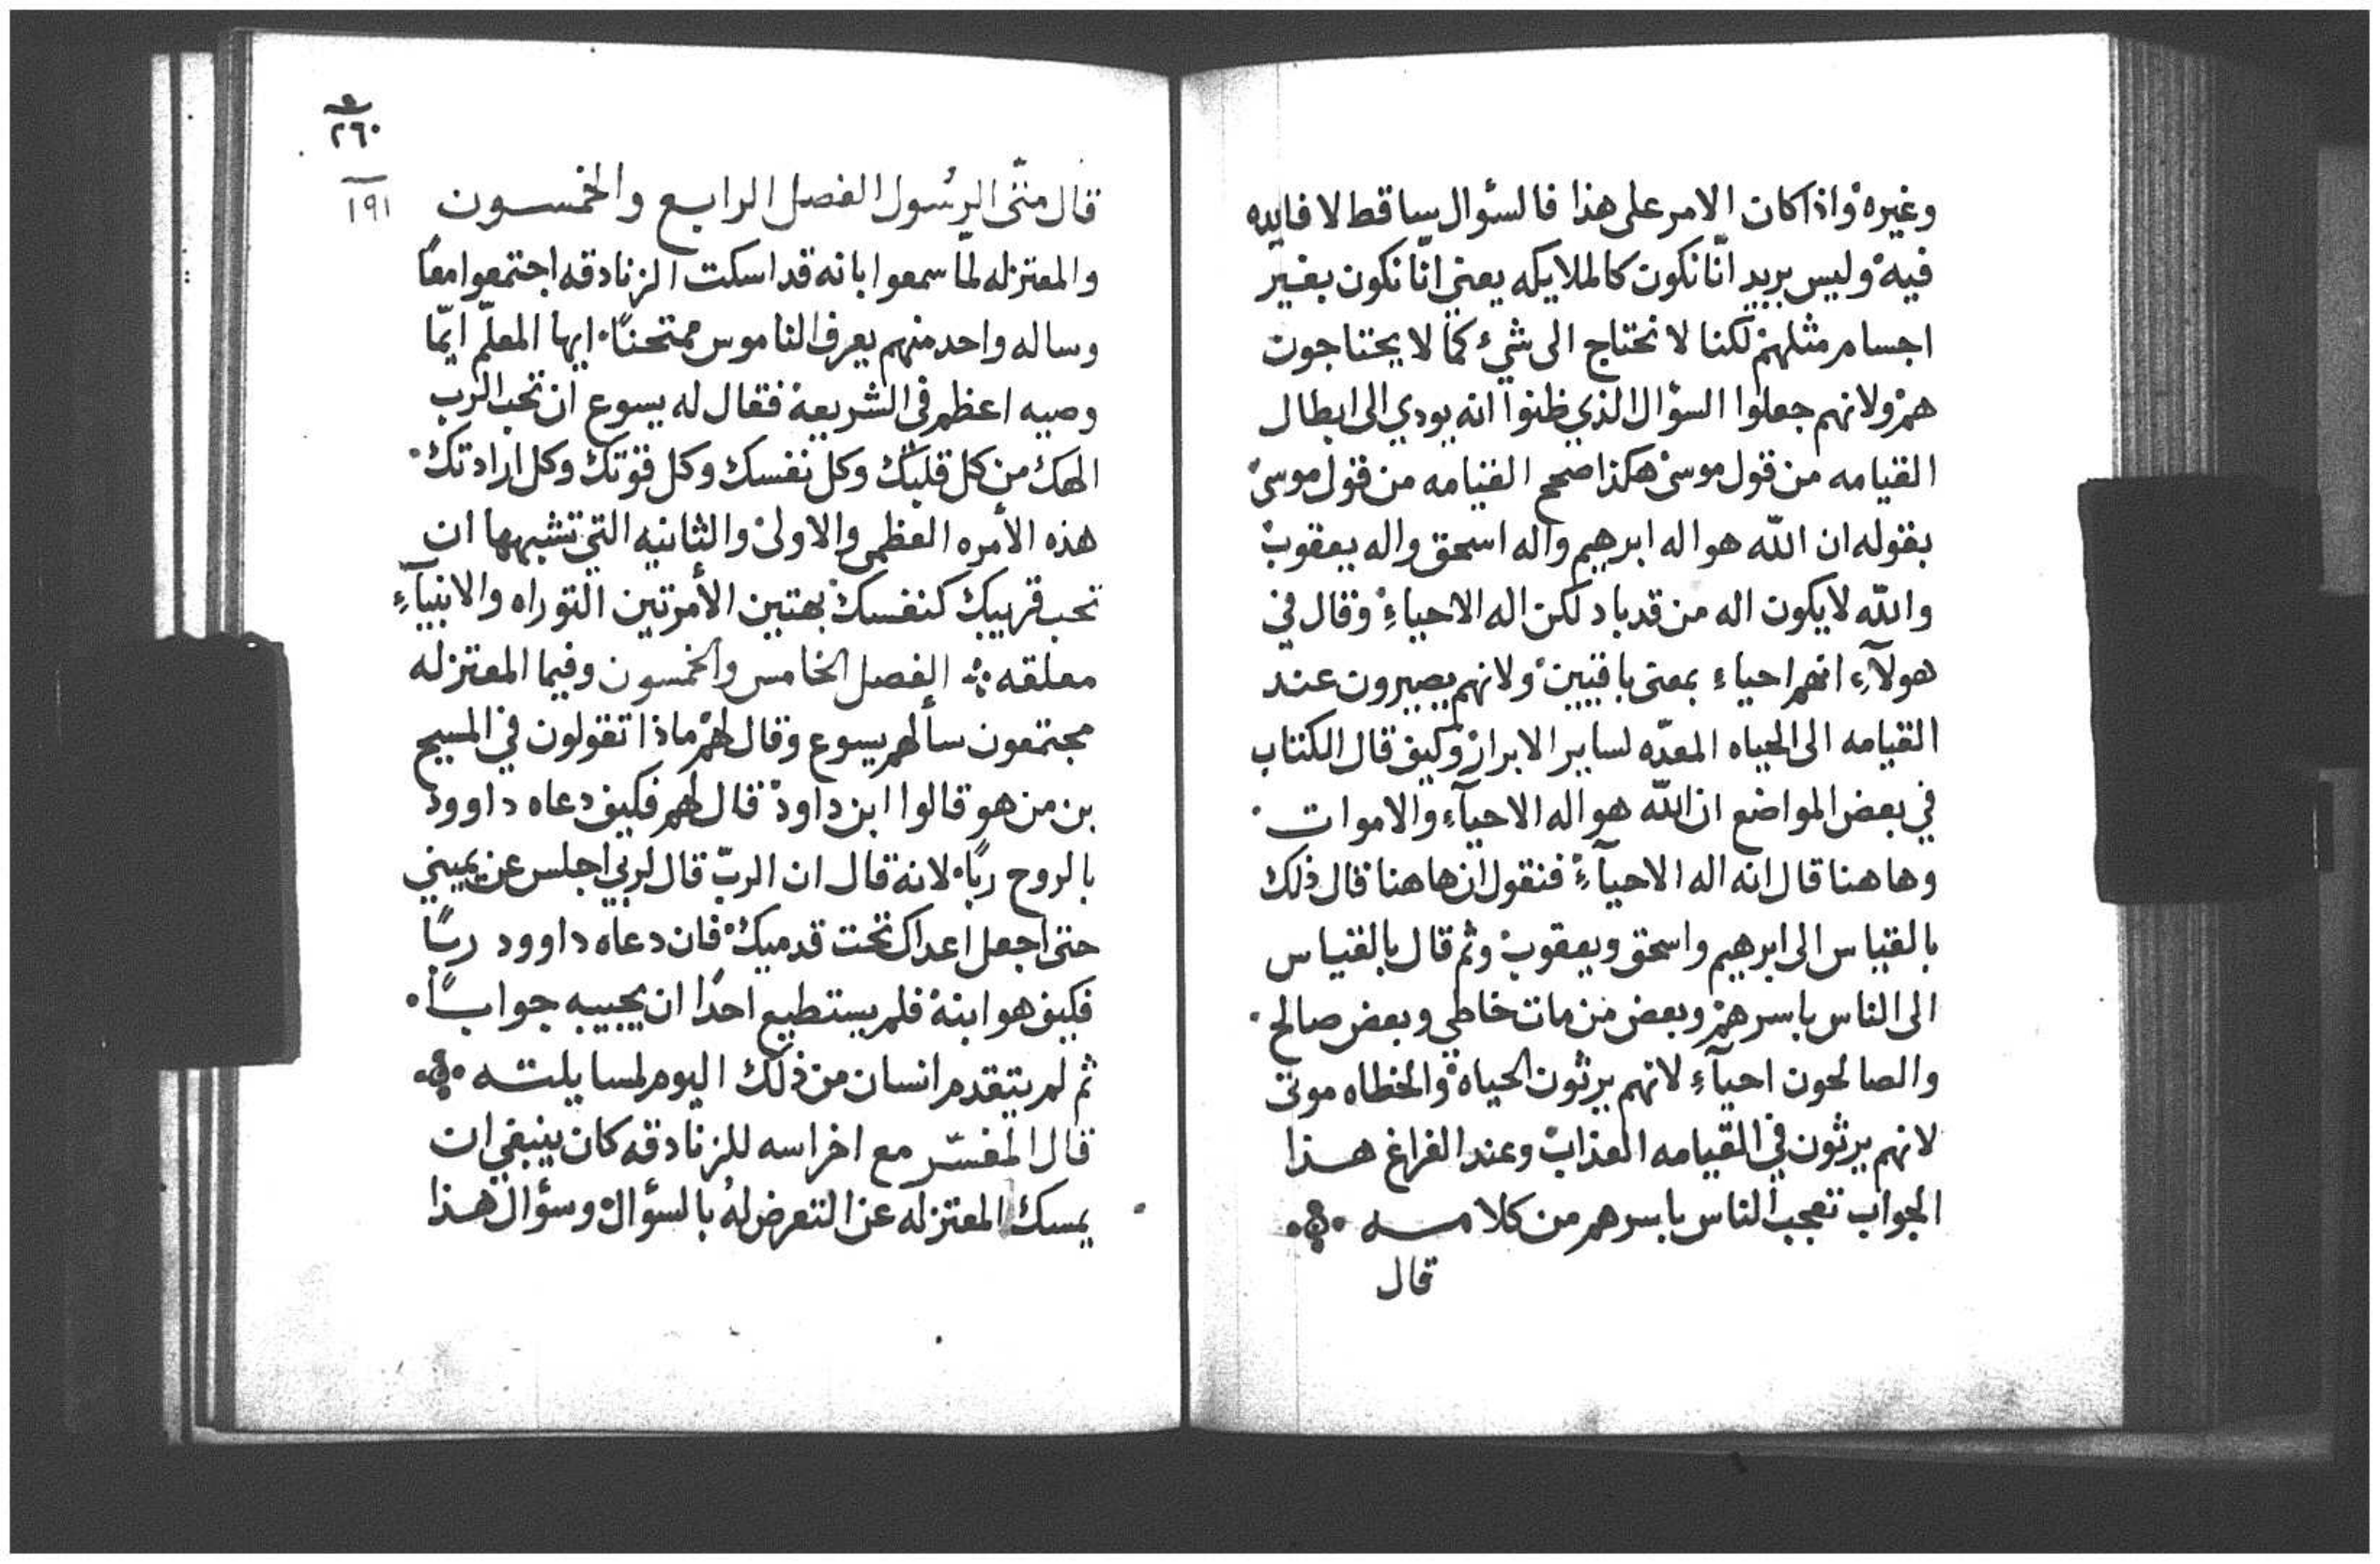 وغيره واذا كان الامر على هذا فالسؤال ساقط لا فايده
فيه وليس يريد انّا نكون كالملايكه يعني انّا نكون بغير
اجسام مثلهم لكنا لا نحتاج الى شيء كما لا يحتاجون
هم ولانهم جعلوا السؤال الذي ظنوا انه يودي الى ابطال
القيامه من قول موسى هكذا صحح القيامه من قول موسى
بقوله ان الله هو اله ابرهيم واله اسحق واله يعقوب
والله لا يكون اله من قد باد لكن اله الاحياءِ وقال في
هولآءِ انهم احياء بمعنى باقيين ولانهم يصيرون عند
القيامه الى الحياه المعدّه لساير الابرار وكيف قال الكتاب
في بعض المواضع ان الله هو اله الاحيآء والاموات
وهاهنا قال انه اله الاحيآءِ فنقول ان هاهنا قال ذلك
بالقياس الى ابرهيم واسحق ويعقوب وثم قال بالقياس
الى الناس باسرهم وبعض من مات خاطي وبعض صالح
والصالحون احيآءِ لانهم يرثون الحياه والخطاه موتى
لانهم يرثون في القيامه العذاب وعند الفراغ هذا
الجواب تعجب الناس باسرهم من كلامه
قال
٢٦٠
١٩١
قال متّى الرسُول الفصل الرابع والخمسون
والمعتزله لمّا سمعوا بانه قد اسكت الزنادقه اجتمعوا معًا
وساله واحد منهم يعرف الناموس ممتحنًا ايها المعلّم ايّما
وصيه اعظم في الشريعة فقال له يسوع ان تحب الرب
الهك من كل قلبك وكل نفسك وكل قوتك وكل ارادتك
هذه الأمره العظمى والاولى والثانيه التي تشبهها ان
تحب قريبك كنفسك بهتين الأمرتين التوراه والانبيآءِ
معلقه الفصل الخامس والخمسون وفيما المعتزله
مجتمعون سألهم يسوع وقال لهم ماذا تقولون في المسيح
بن من هو قالوا ابن داود قال لهم فكيف دعاه داوود
بالروح ربًا لانه قال ان الربّ قال لربي اجلس عن يميني
حتى اجعل اعداك تحت قدميك فان دعاه داوود ربًا
فكيف هو ابنه فلم يستطيع احدًا ان يجيبه جوابًا
ثم لم يتقدم انسان من ذلك اليوم لمسايلته
قال المفسّر مع اخراسه للزنادقه كان ينبغي ان
يمسك المعتزله عن التعرض لهُ بالسؤال وسؤال هذا